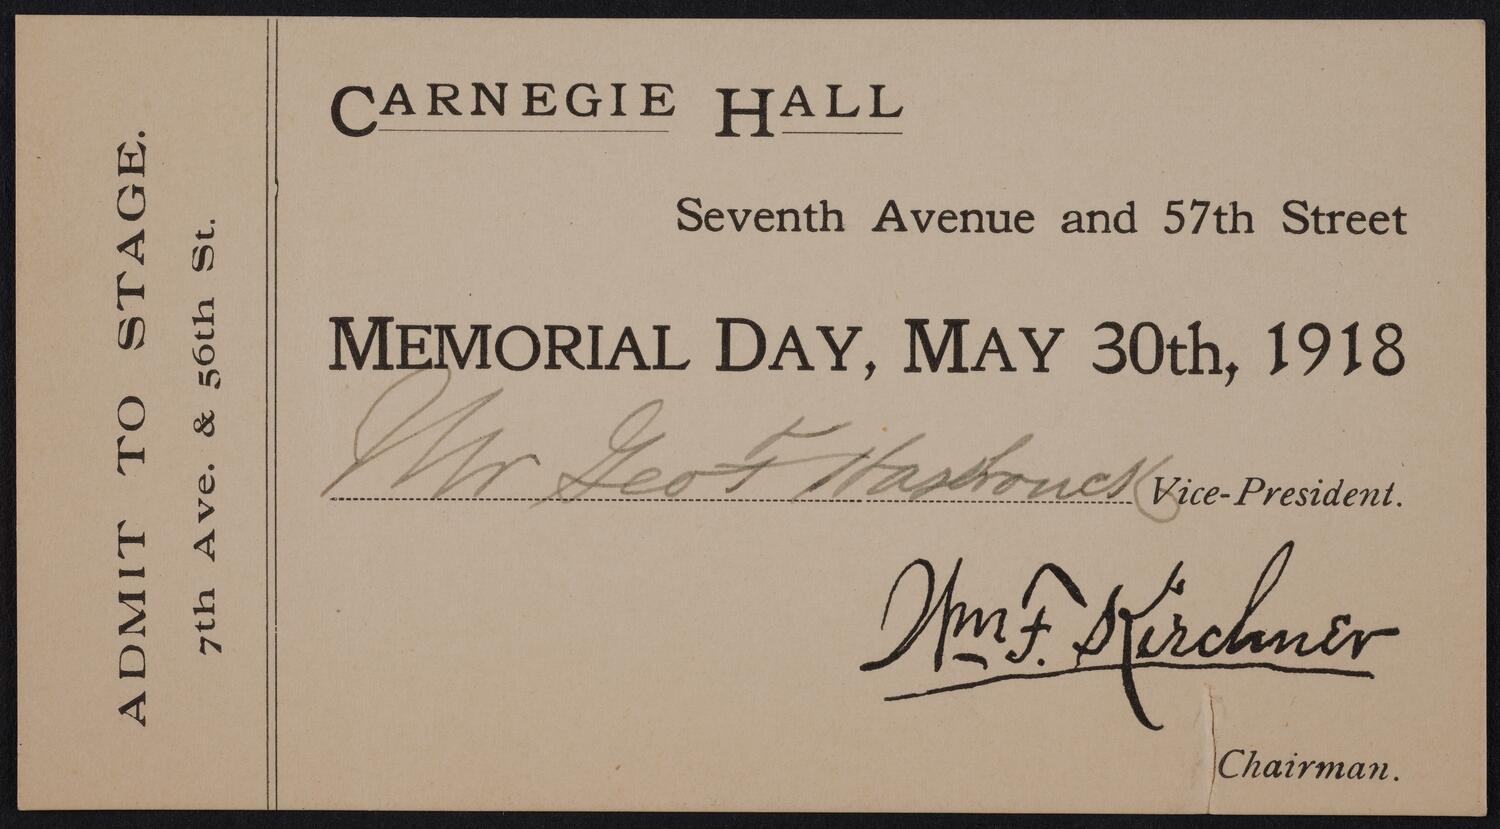 ADMIT TO STAGE.
7th Ave. & 56th St.
CARNEGIE HALL
Seventh Avenue and 57th Street
MEMORIAL DAY, MAY 30th, 1918
Mr Geo F Hasbrouck Vice-President.
Wm. F. Kirchner
Chairman.